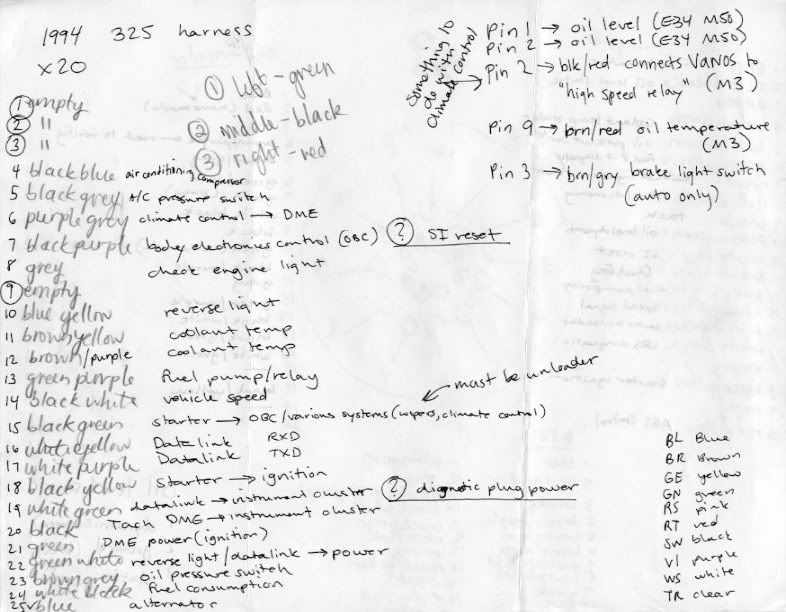 1994 325 harness
x20
① left - green
② middle - black
③ right - red
① empty
② "
③ "
4 black blue air conditioning compressor
5 black grey A/C pressure switch
6 purple grey climate control → DME
7 black purple body electronics control (OBC) ? SI reset
8 grey check engine light
⑨ empty
10 blue yellow reverse light
11 brown yellow coolant temp
12 brown/purple coolant temp
13 green purple fuel pump/relay
14 black white vehicle speed
must be unloader
15 black green starter → OBC/various systems (wipers, climate control)
16 white yellow Datalink RXD
17 white purple Datalink TXD
18 black yellow starter → ignition
19 white green datalink → instrument cluster ? diagnostic plug power
20 black Tach DME → instrument cluster
21 green DME power (ignition)
22 green white reverse light/datalink → power
23 brown grey oil pressure switch
24 white black fuel consumption
25 blue alternator
Something to do with climate control
Pin 1 → oil level (E34 M50)
Pin 2 → oil level (E34 M50)
Pin 2 → blk/red connects VANOS to
"high speed relay" (M3)
Pin 9 → brn/red oil temperature
(M3)
Pin 3 → brn/gry brake light switch
(auto only)
BL Blue
BR Brown
GE yellow
GN green
RS pink
RT red
SW black
VI purple
WS white
TR clear